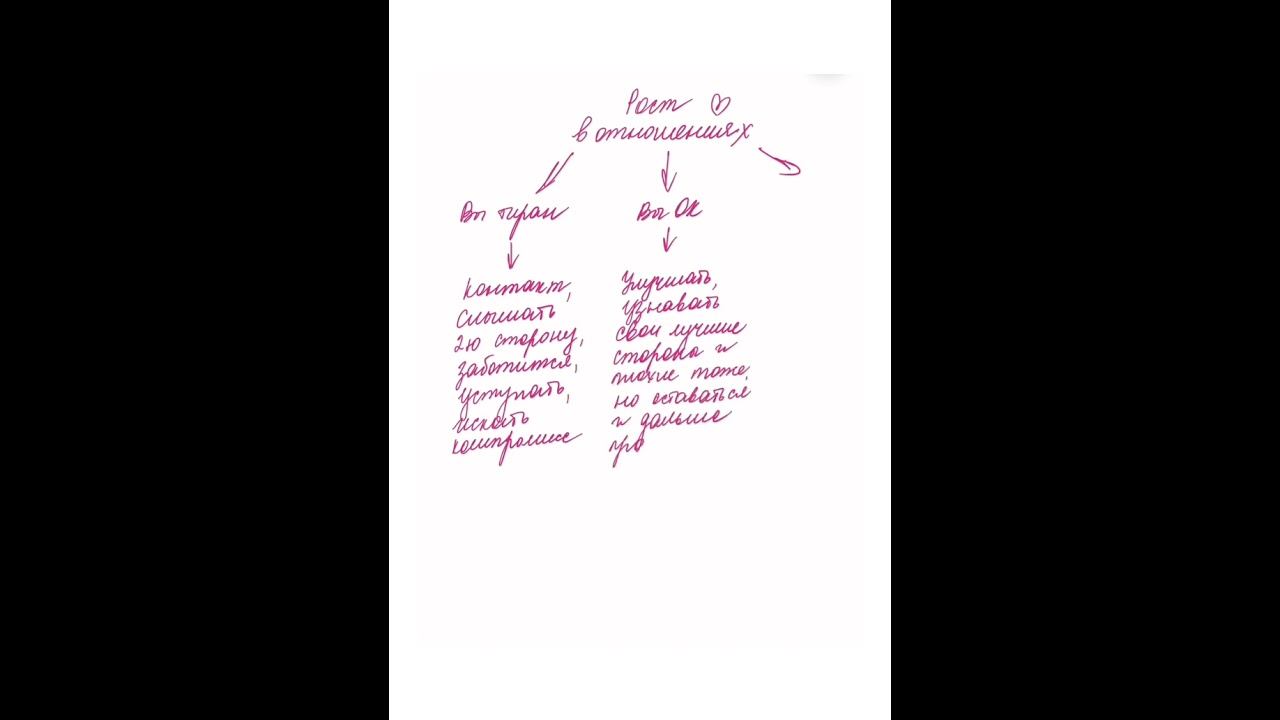 Рост
в отношениях
Вы тиран
Вы Ок
Контакт,
слышать
2ю сторону,
заботится,
уступать,
искать
компромисс
Улучшать,
узнавать
свои лучшие
стороны и
плохие тоже,
но оставаться
и дальше
про